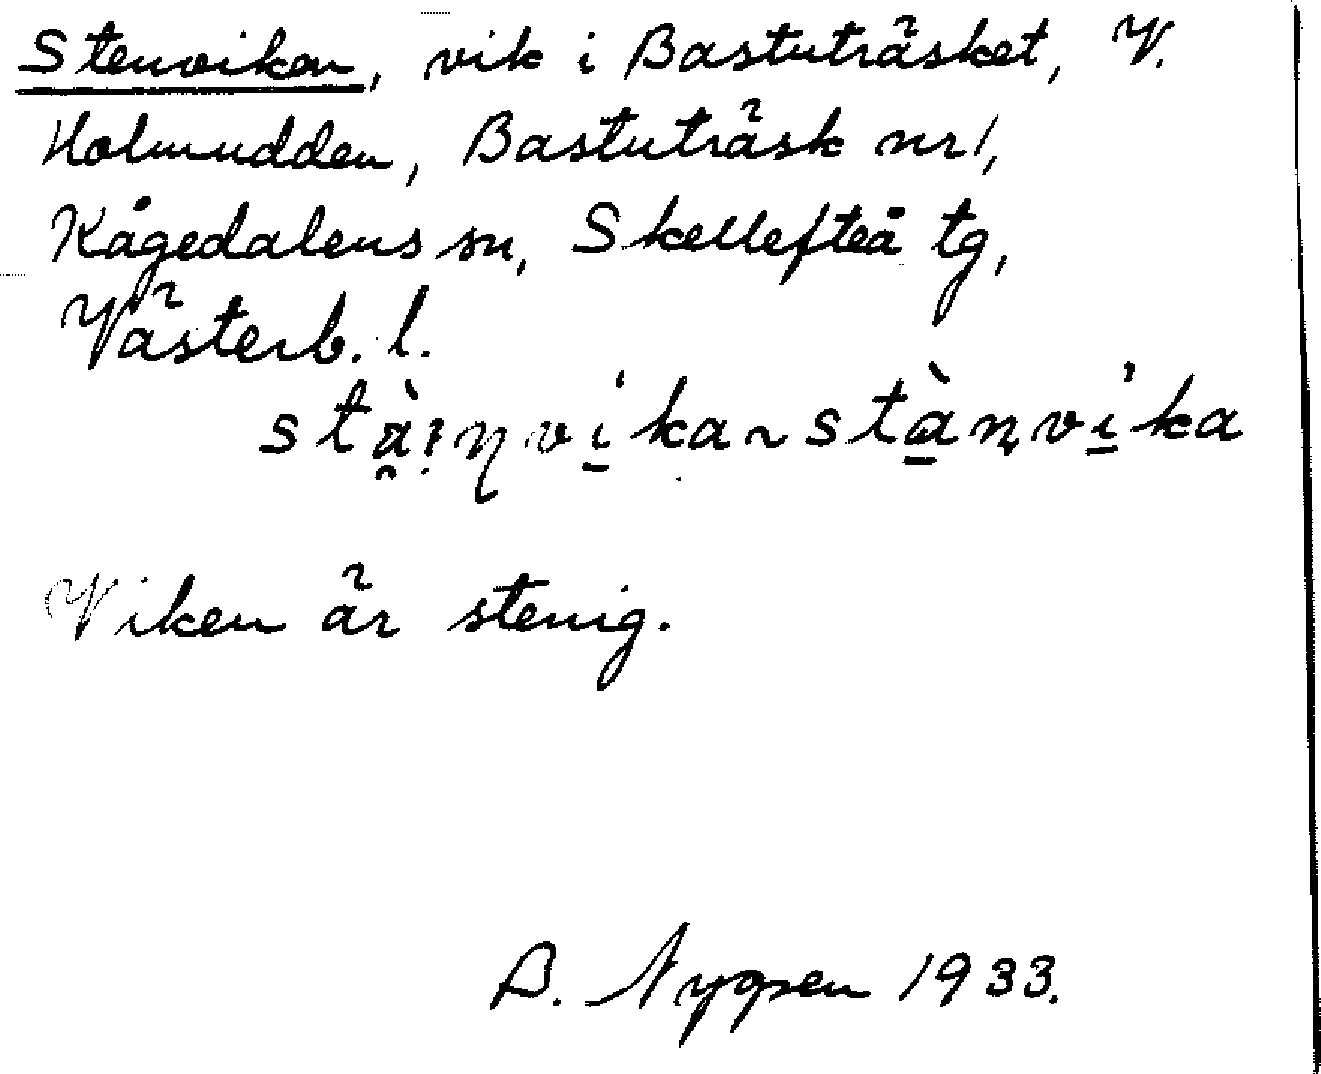 Stenviken, vik i Bastuträsket, V.
Holmudden, Bastuträsk nr 1,
Kågedalens sn, Skellefteå tg,
Västerb. l.
stä̀i̯ŋvi̱'ka ~ stà̱nvi̱'ka
Viken är stenig.
B. 1933.